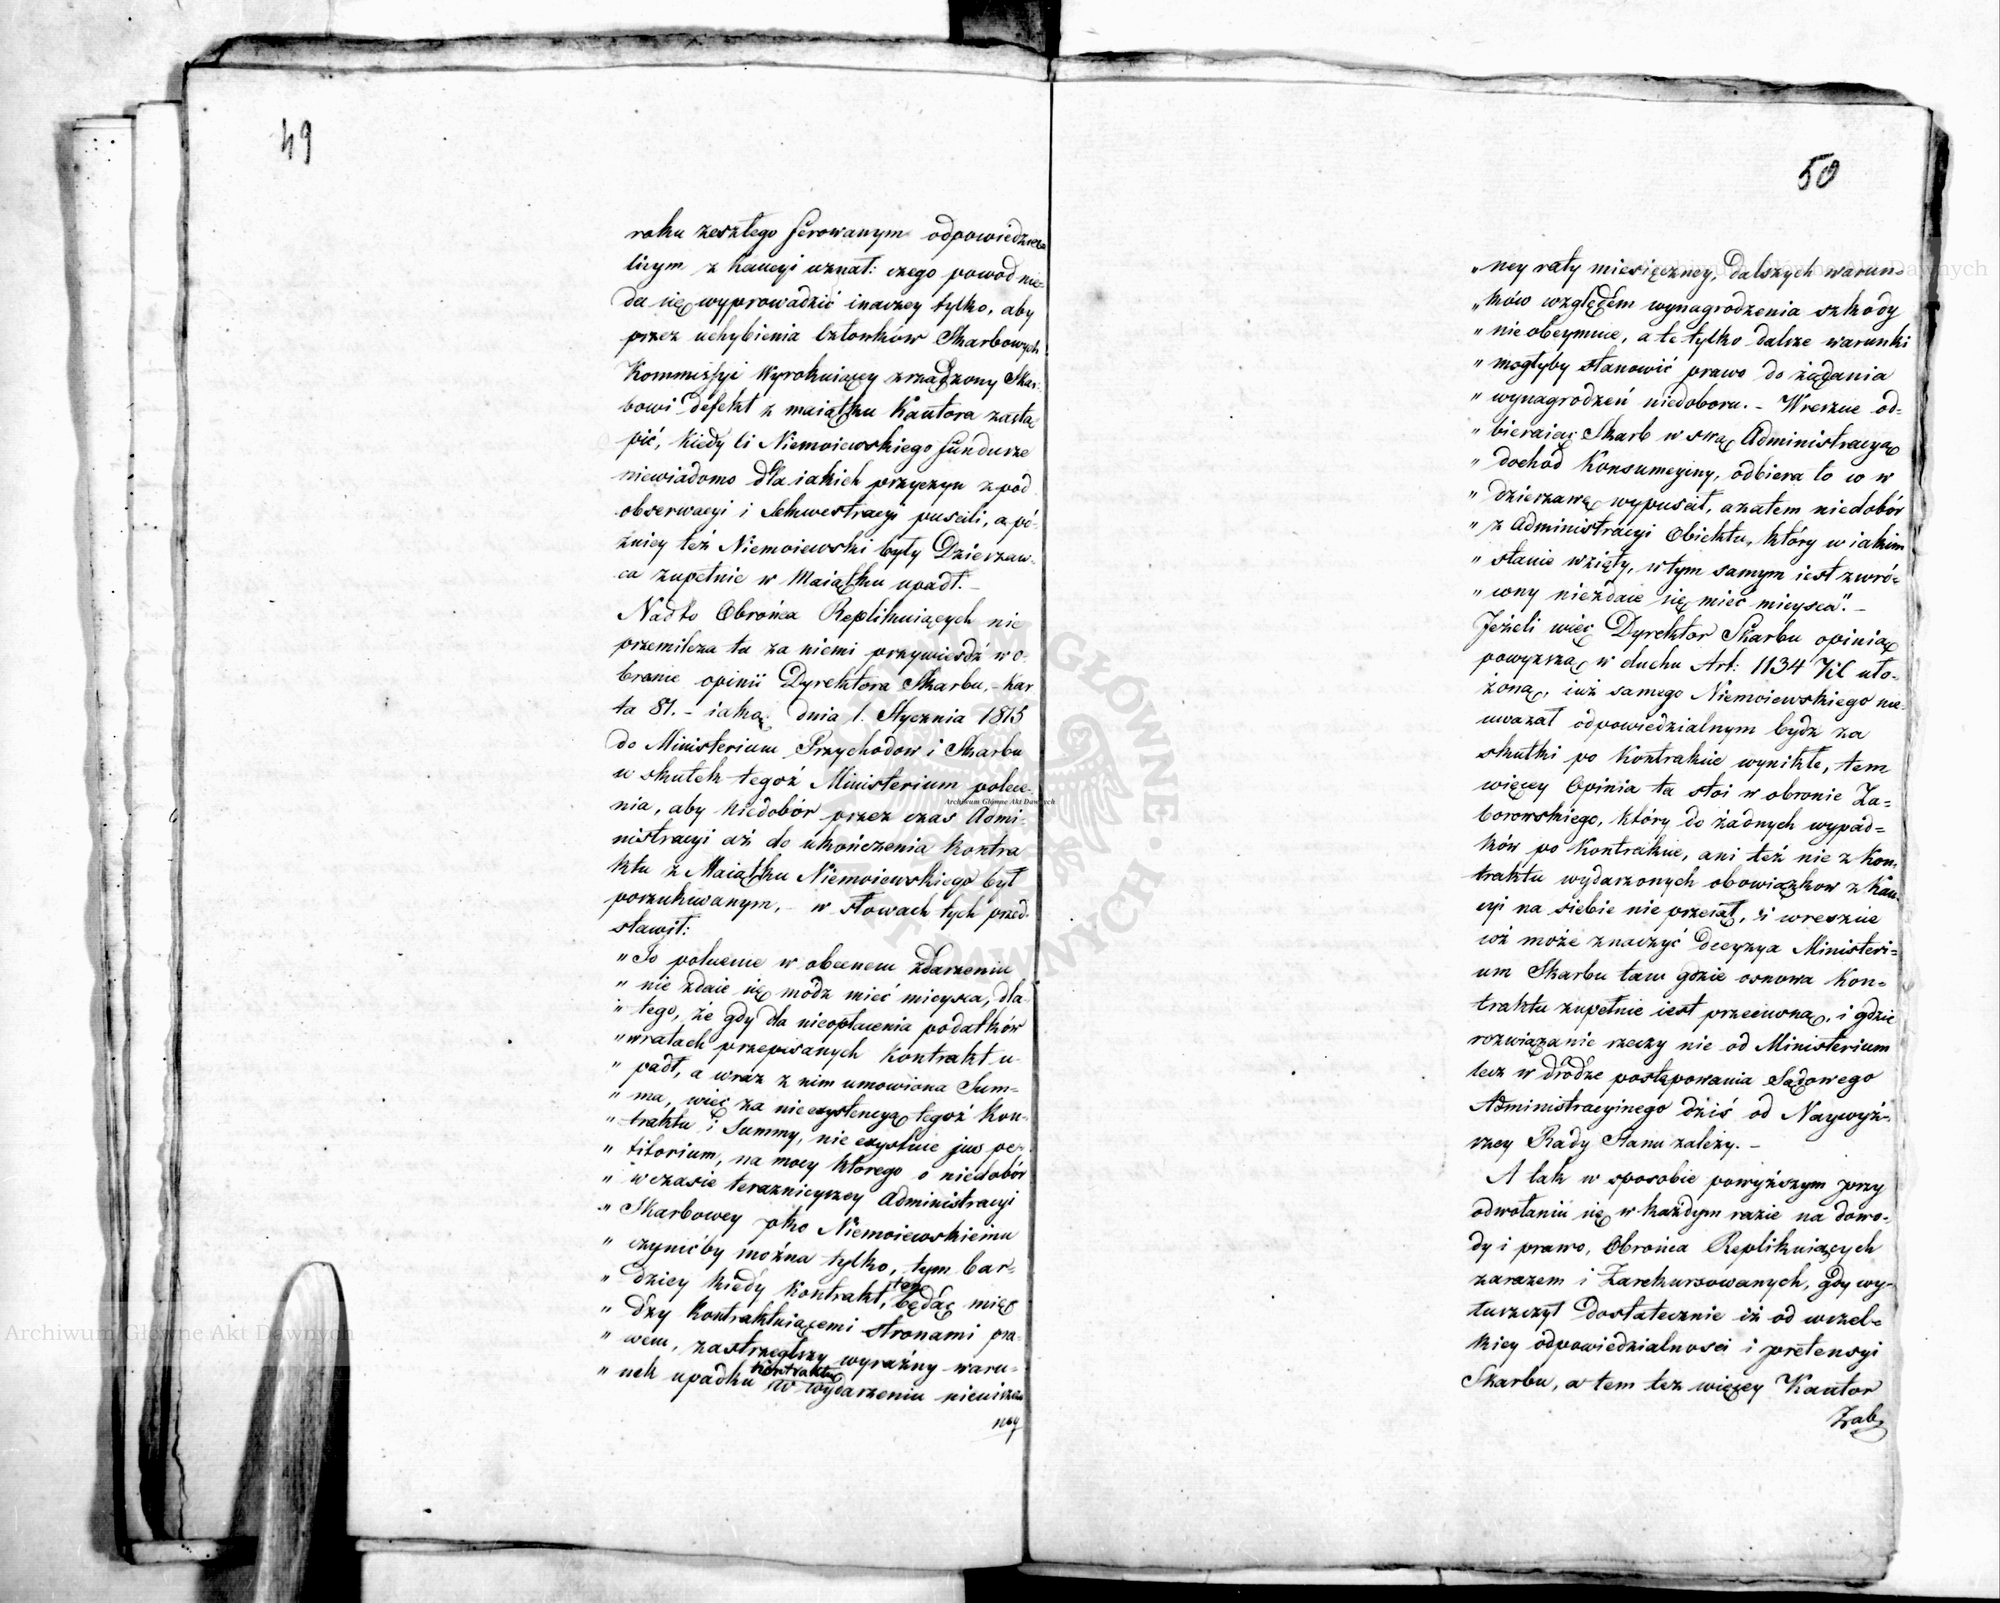 49
roku zeszłego ferowanym odpowiedzial
licym z kaucyi uznał: czego powod nie-
da się wyprowadzić inaczey tylko, aby
przez uchybienia Członków Skarbowych
Kommissyi Wyrokuiącey zrządzony Skar-
bowi defekt z maiątku Kautora zastą
pić, kiedy ci Niemoiewskiego fundusze
niewiadomo dla iakich przyczyn z pod
obserwacyi i Sekwestracyi puscili, a pó-
źniey też Niemoiewski były Dzierzaw-
ca zupełnie w Maiątku upadł. –
Nadto Obrońca Replikuiących nie
przemilcza tu za niemi przywieśdź w o-
bronie opinii Dyrektora Skarbu, – Kar
ta 81. – iaką dnia 1. Stycznia 1815
do Ministerium Przychodow i Skarbu
w skutek tegoż Ministerium polece-
nia, aby Niedobór przez czas Admi-
nistracyi aż do ukończenia Kontra
ktu z Maiątku Niemoiewskiego był
poszukiwanym, – w słowach tych przed-
stawił:
„ To polecenie w obecnem zdarzeniu
„ nie zdaie się módz mieć mieysca, dla-
„ tego, że gdy dla nieopłacenia podatków
„ w ratach przepisanych Kontrakt u-
„ padł, a wraz z nim umowiona Sum-
„ ma, więc za nieexystencyą tegoż Kon-
„ traktu i Summy, nie exystuie jus pe-
„ titorium, na mocy którego o niedobór
„ w czasie teraznieyszey Administracyi
„ Skarbowey jako Niemoiewskiemu
„ czynićby można tylko, tym bar-
„ dziey kiedy Kontrakt, ten będąc mię
„ dzy Kontraktuiącemi stronami pra-
„ wem, zastrzegłszy wyraźny waru-
„ nek upadku kontraktu w wydarzeniu nieuiszczo
ney
50
„ ney raty miesięczney, dalszych warun-
„ ków względem wynagrodzenia szkody
„ nie obeymuie, a te tylko dalsze warunki
„ mogłyby stanowić prawo do żądania
„ wynagrodzeń niedoboru. – Wreszcie od-
„ bieraiąc Skarb w swą Administracyą
„ dochód Konsumcyiny, odbiera to co w
„ dzierzawę wypuscił, azatem niedobór
„ z Administracyi Obiektu, który w iakim
„ stanie wzięty, w tym samym iest zwró-
„ cony niezdaie się mieć mieysca". –
Jeżeli więc Dyrektor Skarbu opinią
powyższą w duchu Art: 1134 KC uło-
żoną, iuż samego Niemoiewskiego nie-
uważał odpowiedzialnym bydz za
skutki po Kontrakcie wynikłe, tem
więcey Opinia ta stoi w obronie Za-
borowskiego, który do żadnych wypad-
ków po Kontrakcie, ani też nie z Kon-
traktu wydarzonych obowiązkow z Kau-
cyi na siebie nie przeiął, i wreszcie
cóż może znaczyć Decyzya Ministeri-
um Skarbu tam gdzie osnowa Kon-
traktu zupełnie iest przeciwną, i gdzie
rozwiązanie rzeczy nie od Ministerium
lecz w drodze postępowania Sądowego
Administracyinego dziś od Naywyż-
szey Rady Stanu zależy. –
A tak w sposobie powyższym przy
odwołaniu się w każdym razie na dowo-
dy i prawo, Obrońca Replikuiących
zarazem i Zarekursowanych, gdy wy-
łuszczył dostatecznie iż od wszel-
kiey odpowiedzialnosci i pretensyi
Skarbu, a tem też więcey Kautor
Zab.
Archiwum Główne Akt Dawnych
Archiwum Główne Akt Dawnych
Archiwum Główne Akt Dawnych